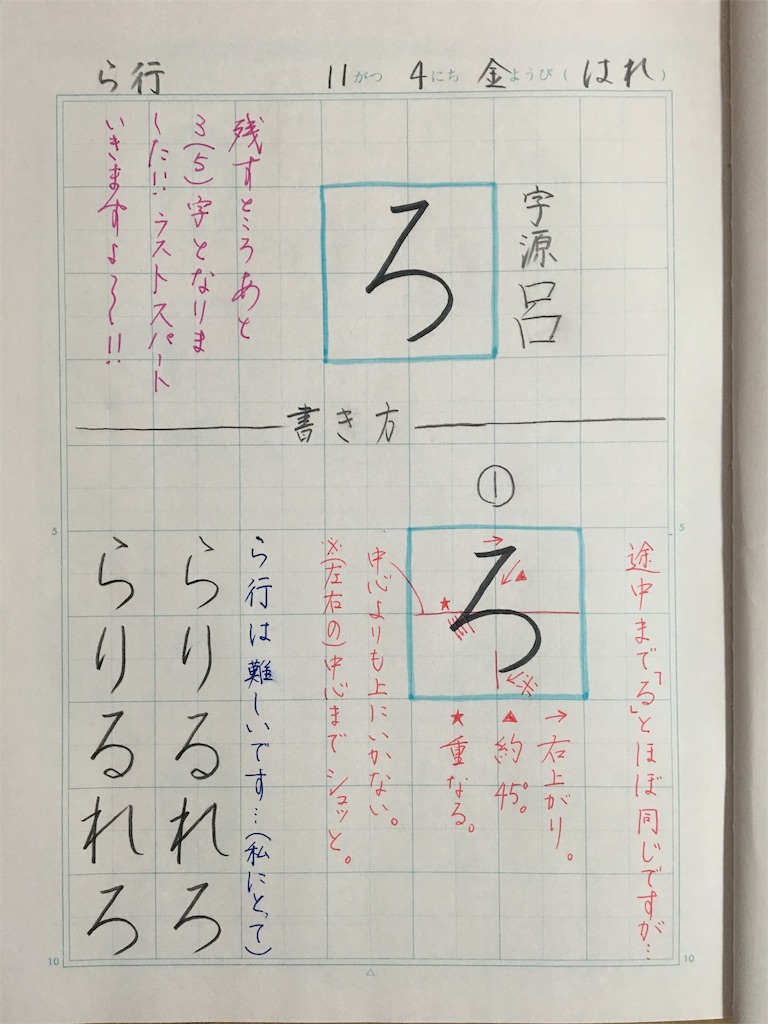 ら行
11がつ 4にち 金ようび（はれ）
字源 呂
ろ
残すところあと
3(5)字となりま
した!! ラストスパート
いきますよ〜!!
書き方
①
途中まで「る」とほぼ同じですが…
ろ
→ ▲ ★ ※
→右上がり。
▲約45°。
★重なる。
中心よりも上にいかない。
※(左右の)中心までシュッと。
ら行は難しいです…(私にとって)
らりるれろ
らりるれろ
5
5
10
10